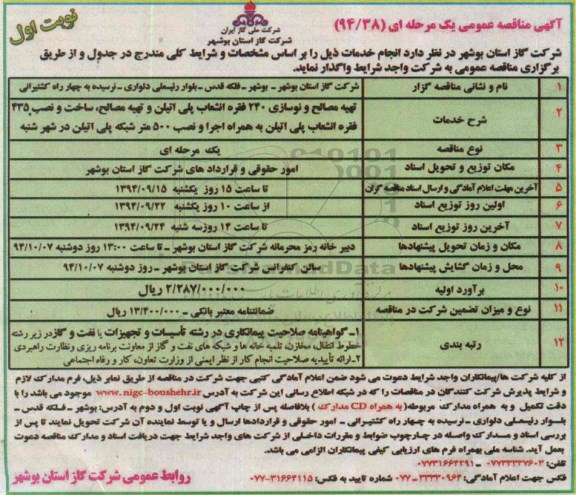 نوبت اول
شرکت ملی گاز ایران
شرکت گاز استان بوشهر
آگهی مناقصه عمومی یک مرحله ای (۹۴/۳۸)
شرکت گاز استان بوشهر در نظر دارد انجام خدمات ذیل را بر اساس مشخصات و شرایط کلی مندرج در جدول و از طریق
برگزاری مناقصه عمومی به شرکت واجد شرایط واگذار نماید.
۱ نام و نشانی مناقصه گزار شرکت گاز استان بوشهر - بوشهر - فلکه قدس - بلوار رئیسعلی دلواری - نرسیده به چهار راه کشتیرانی
۲ شرح خدمات تهیه مصالح و نوسازی ۲۴۰ فقره انشعاب پلی اتیلن و تهیه مصالح، ساخت و نصب ۴۳۵
فقره انشعاب پلی اتیلن به همراه اجرا و نصب ۵۰۰ متر شبکه پلی اتیلن در شهر شنبه
۳ نوع مناقصه یک مرحله ای
۴ مکان توزیع و تحویل اسناد امور حقوقی و قرارداد های شرکت گاز استان بوشهر
۵ آخرین مهلت اعلام آمادگی و ارسال اسناد مناقصه گران تا ساعت ۱۵ روز یکشنبه ۱۳۹۴/۰۹/۱۵
۶ اولین روز توزیع اسناد از ساعت ۱۰ روز یکشنبه ۱۳۹۴/۰۹/۲۲
۷ آخرین روز توزیع اسناد تا ساعت ۱۴ روز سه شنبه ۱۳۹۴/۰۹/۲۴
۸ مکان و زمان تحویل پیشنهادها دبیر خانه رمز محرمانه شرکت گاز استان بوشهر - تا ساعت ۱۳:۰۰ روز دوشنبه ۹۴/۱۰/۰۷
۹ محل و زمان گشایش پیشنهادها سالن کنفرانس شرکت گاز استان بوشهر - روز دوشنبه ۹۴/۱۰/۰۷
۱۰ برآورد اولیه ۲/۲۸۷/۰۰۰/۰۰۰ ریال
۱۱ نوع و میزان تضمین شرکت در مناقصه ضمانتنامه معتبر بانکی - ۱۳/۴۰۰/۰۰۰ ریال
۱۲ رتبه بندی ۱- گواهینامه صلاحیت پیمانکاری در رشته تأسیسات و تجهیزات یا نفت و گاز در زیر رشته
خطوط انتقال، مخازن، تلمبه خانه ها و شبکه های نفت و گاز از معاونت برنامه ریزی ونظارت راهبردی
۲- ارائه تأییدیه صلاحیت انجام کار از نظر ایمنی از وزارت تعاون، کار و رفاه اجتماعی
از کلیه شرکت ها/پیمانکاران واجد شرایط دعوت می شود ضمن اعلام آمادگی کتبی جهت شرکت در مناقصه از طریق نمابر ذیل، فرم مدارک لازم
و شرایط پذیرش شرکت کنندگان در مناقصات را که در شبکه اطلاع رسانی این شرکت به آدرس www.nigc-boushehr.ir موجود می باشد را با
دقت تکمیل و به همراه مدارک مربوطه (به همراه CD مدارک) بلافاصله پس از چاپ آگهی نوبت اول و دوم به آدرس: بوشهر - فلکه قدس -
بلوار رئیسعلی دلواری - نرسیده به چهار راه کشتیرانی - امور حقوقی و قراردادها ارسال و یا توسط نماینده آن شرکت تحویل نمایند تا پس از
بررسی اسناد و مدارک واصله در چارچوب ضوابط و مقررات داخلی از شرکت های واجد شرایط جهت دریافت اسناد و مدارک مناقصه دعوت
بعمل آید. شناسه ملی بهمراه فرم های ارزیابی کیفی پیمانکاران الزامی می باشد.
تلفن: ۰۷۷۳۳۳۳۷۶۰۳ - ۰۷۷۳۱۶۶۴۲۹۱
فکس جهت اعلام آمادگی: ۳۳۳۳۰۹۶۴-۰۷۷ شماره تایید به فکس: ۳۱۶۶۴۱۱۵-۰۷۷
روابط عمومی شرکت گاز استان بوشهر